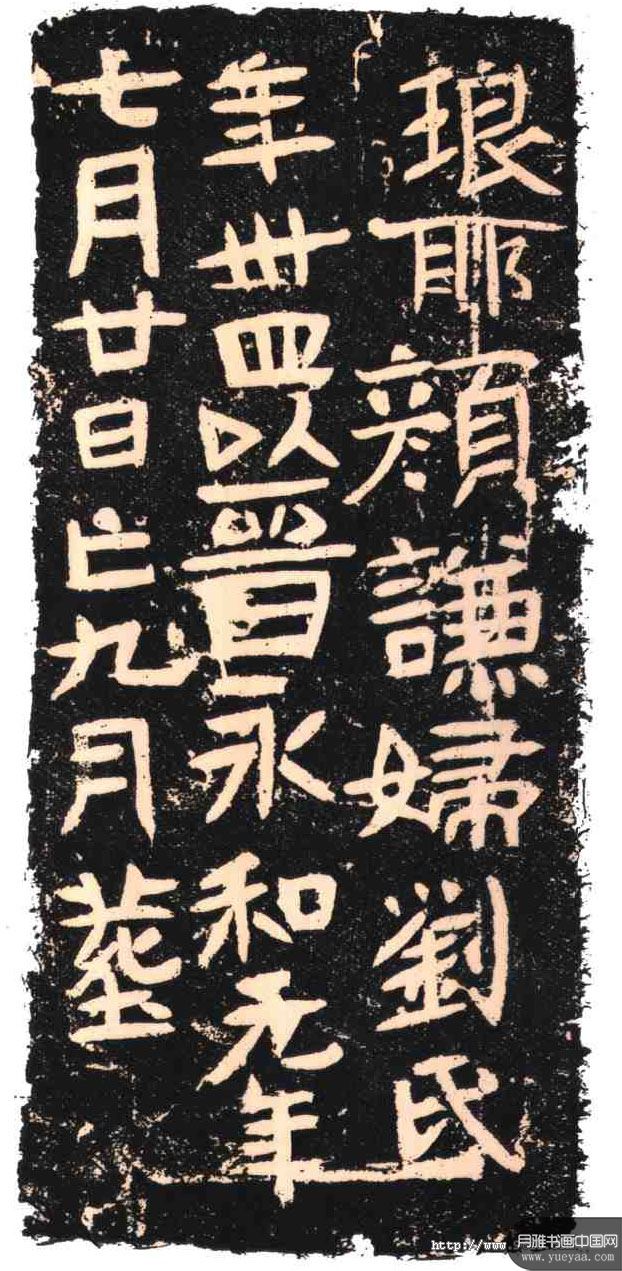 琅耶顏謙婦劉氏
年卅四以晉永和元年
七月廿日亡九月葬
月雅书画中国网
http://www.
www.yueyaa.com